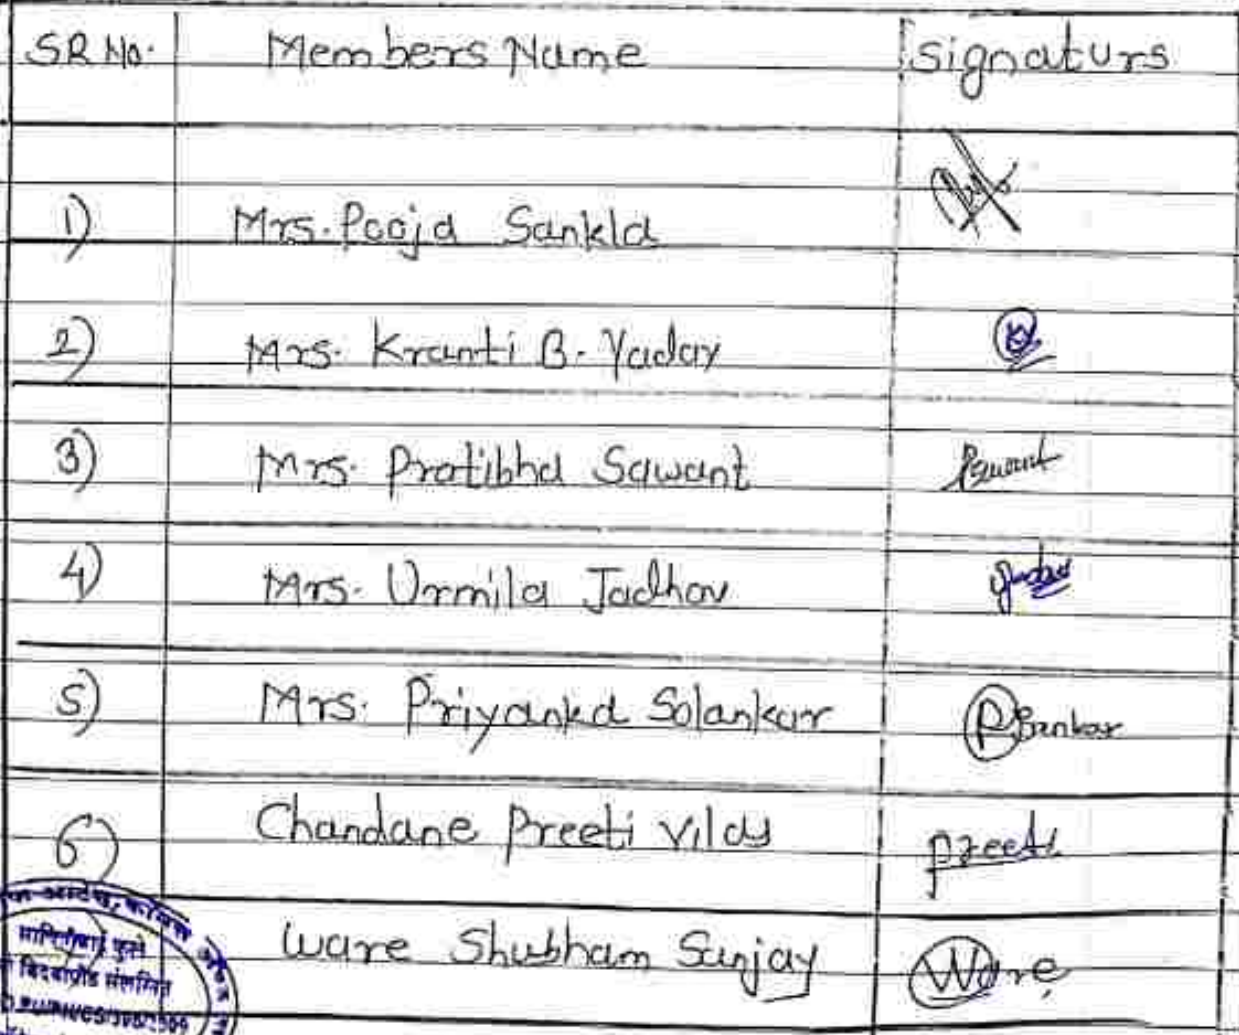 SR No. Members Name Signaturs
1) Mrs. Pooja Sankla
2) Mrs. Kranti B. Yadav
3) Mrs. Pratibha Sawant Psawant
4) Mrs. Urmila Jadhav
5) Mrs. Priyanka Solankar
6) Chandane Preeti Vilas Preeti
Ware Shubham Sanjay Ware
सावित्रीबाई फुले